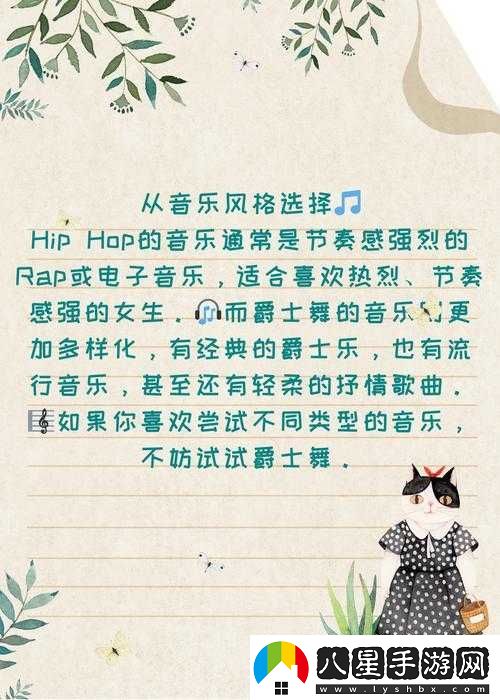 从音乐风格选择🎵
Hip Hop的音乐通常是节奏感强烈的
Rap或电子音乐，适合喜欢热烈、节奏
感强的女生．🎧而爵士舞的音乐则更
加多样化，有经典的爵士乐，也有流
行音乐，甚至还有轻柔的抒情歌曲．
🎼如果你喜欢尝试不同类型的音乐，
不妨试试爵士舞．
八星手游网
www.lyshbx.com